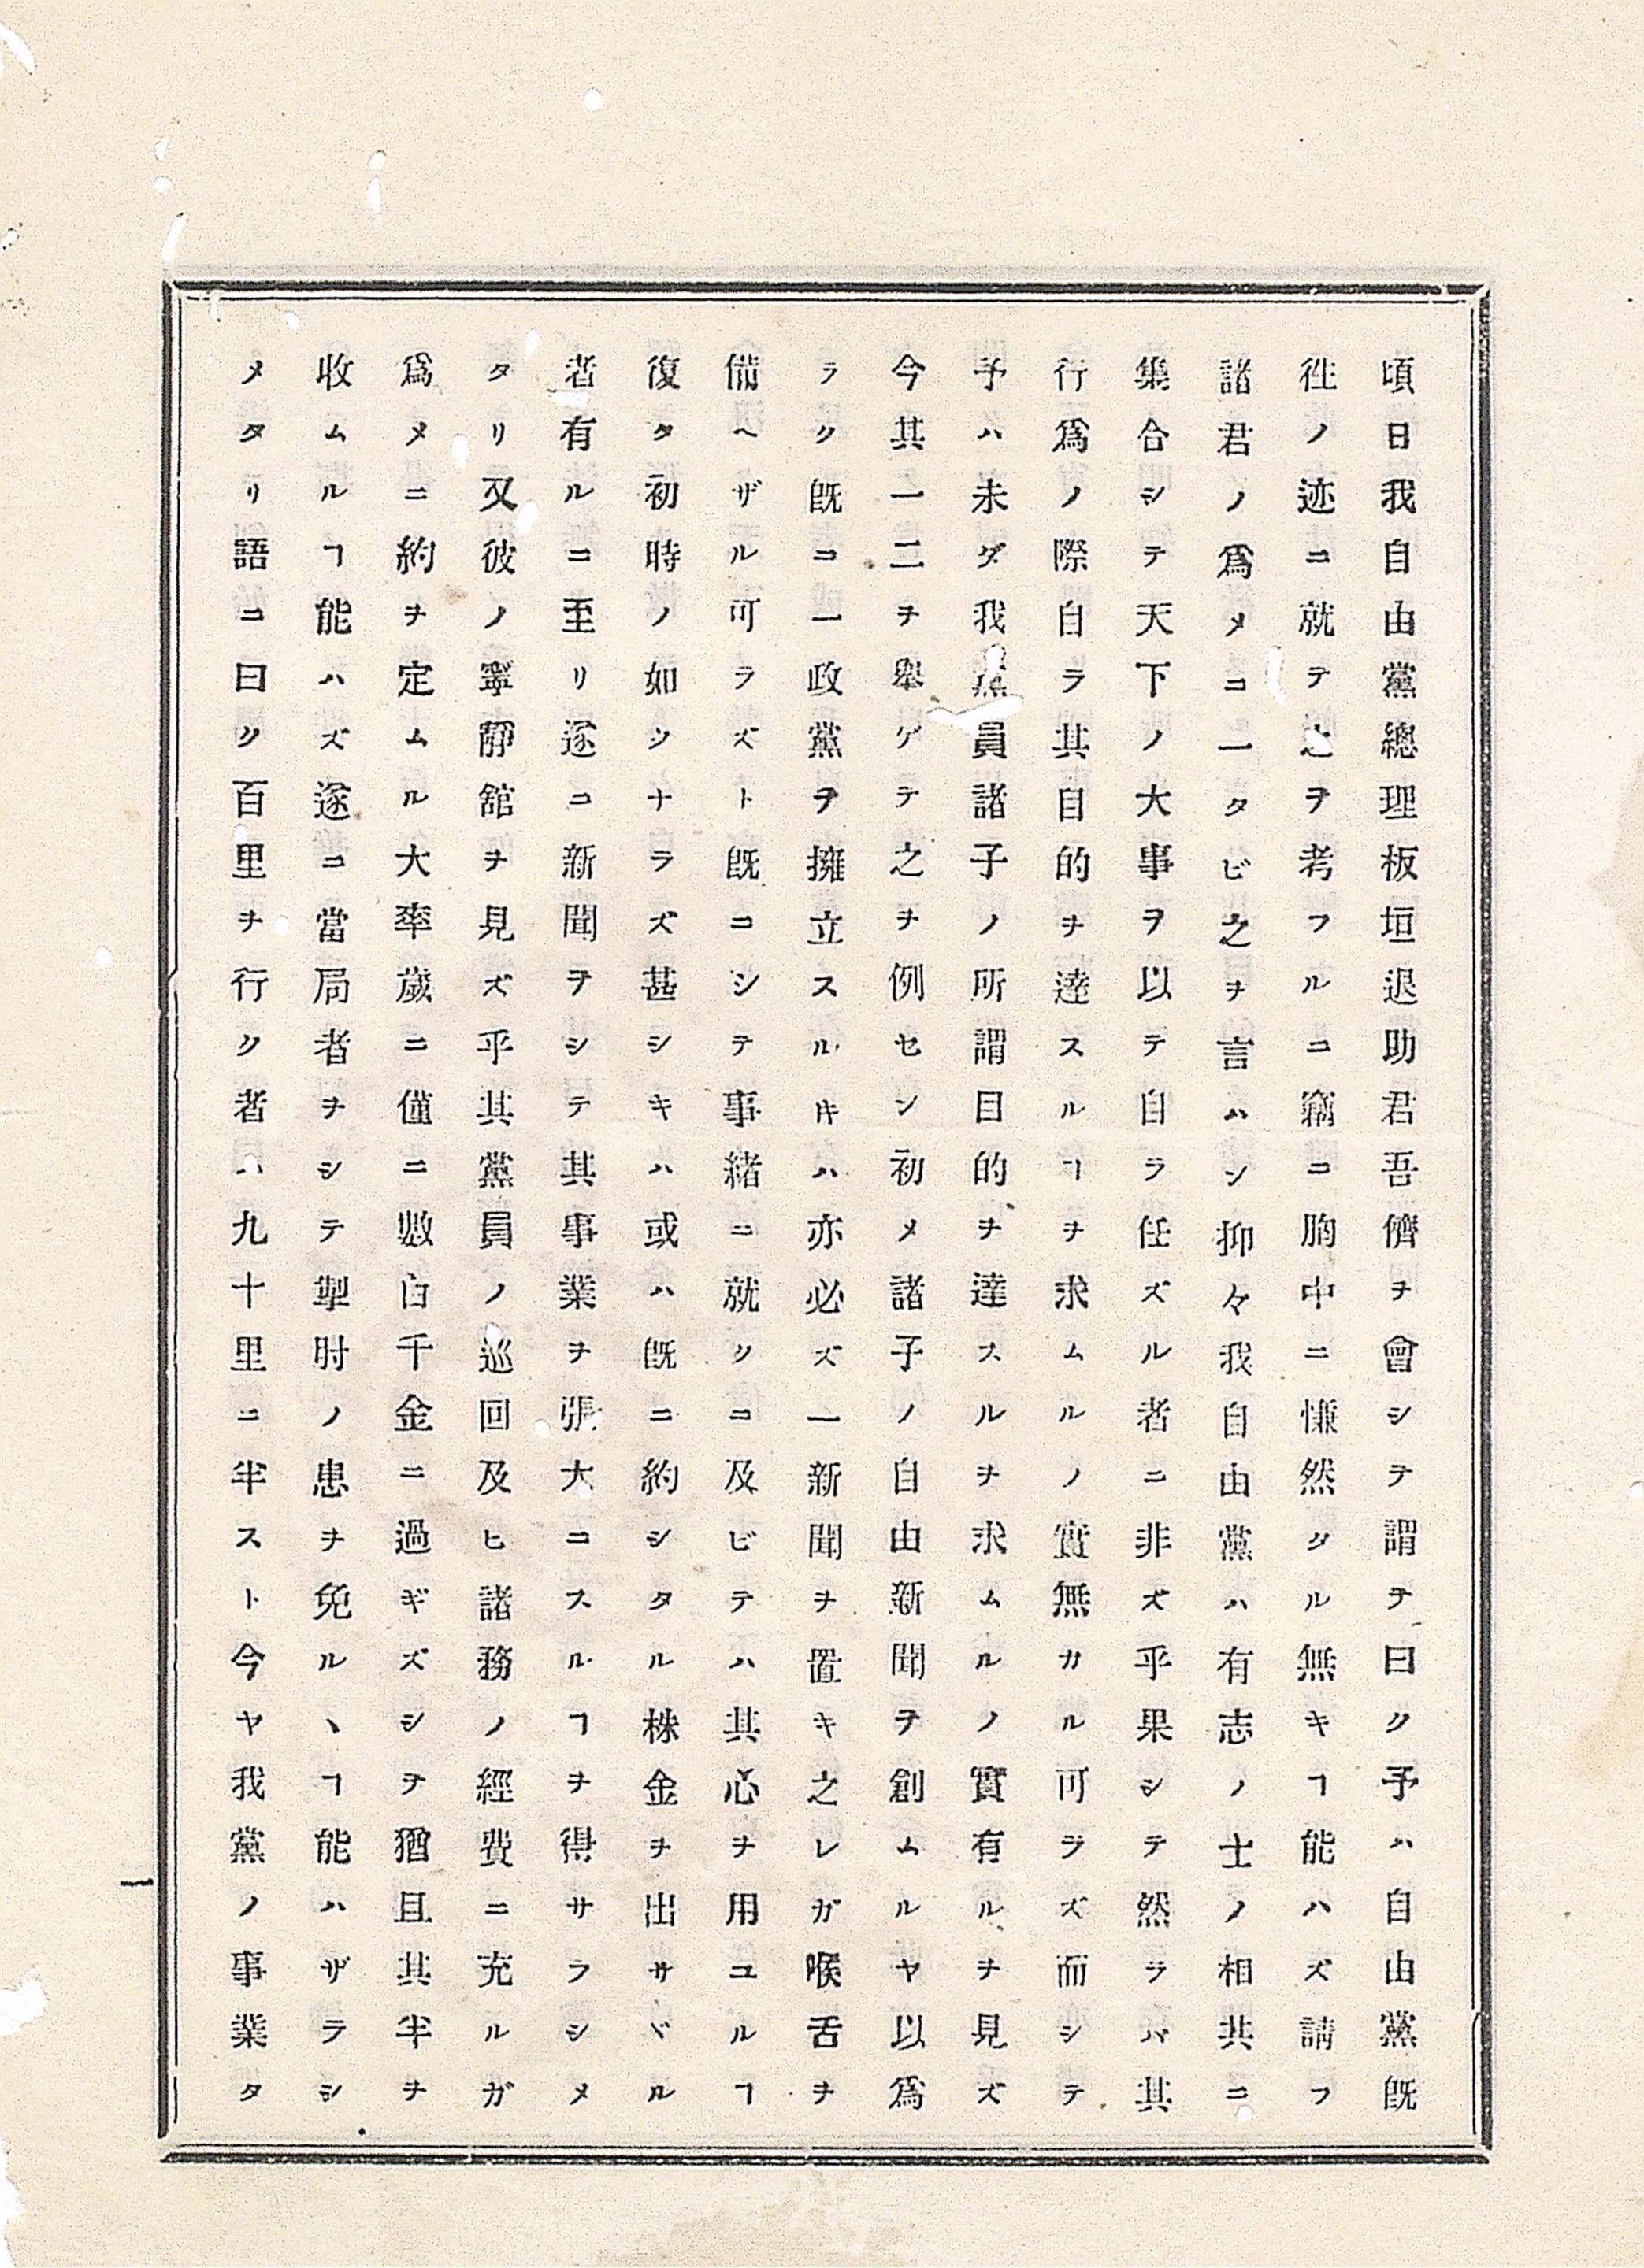 頃日我自由黨總理板垣退助君吾儕ヲ會シテ謂テ曰ク予ハ自由黨既
徃ノ迹ニ就テ之ヲ考フルニ竊ニ胸中ニ慊然タル無キヿ能ハズ請フ
諸君ノ爲メニ一タビ之ヲ言ハン抑々我自由黨ハ有志ノ士ノ相共ニ
集合シテ天下ノ大事ヲ以テ自ラ任ズル者ニ非ズ乎果シテ然ラバ其
行爲ノ際自ラ其目的ヲ達スルヿヲ求ムルノ實無カル可ラズ而シテ
予ハ未ダ我黨員諸子ノ所謂目的ヲ達スルヲ求ムルノ實有ルヲ見ズ
今其一二ヲ舉ゲテ之ヲ例セン初メ諸子ノ自由新聞ヲ創ムルヤ以爲
ラク既ニ一政黨ヲ擁立スル𪜈ハ亦必ズ一新聞ヲ置キ之レガ喉舌ヲ
備ヘザル可ラズト既ニシテ事緒ニ就クニ及ビテハ其心ヲ用ユルヿ
復タ初時ノ如クナラズ甚シキハ或ハ既ニ約シタル株金ヲ出サヾル
者有ルニ至リ遂ニ新聞ヲシテ其事業ヲ張大ニスルヿヲ得サラシメ
タリ又彼ノ寧靜舘ヲ見ズ乎其黨員ノ巡回及ヒ諸務ノ經費ニ充ルガ
爲メニ約ヲ定ムル大率歲ニ僅ニ數百千金ニ過ギズシテ猶且其半ヲ
收ムルヿ能ハズ遂ニ當局者ヲシテ掣肘ノ患ヲ免ルヽヿ能ハザラシ
メタリ語ニ曰ク百里ヲ行ク者ハ九十里ニ半スト今ヤ我黨ノ事業タ
一